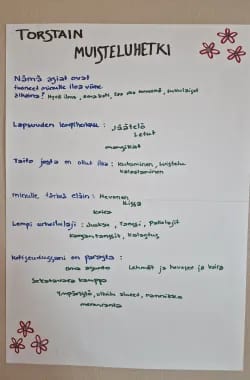 TORSTAIN
MUISTELUHETKI
Nämä asiat ovat
tuoneet minulle iloa viime
aikoina: Hyvä ilma, oma koti,
Lapsuuden lempiherkku: Jäätelö
Letut
mansikat
Taito josta on ollut iloa: Kutominen, luistelu
Kalastaminen
minulle tärkeä eläin: Hevonen
Kissa
Koira
Lempi urheilulaji: Juoksu, Tanssi, Pallolajit
Kansantanssit, Kalastus
Kotiseudussani on parasta:
oma asunto Lehmät ja hevoset ja koira
Sekatavara kauppa
Ympäristö, rannikko
merenranta